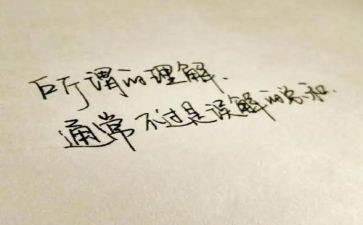 所谓的理解.
通常不过是误解的总和.